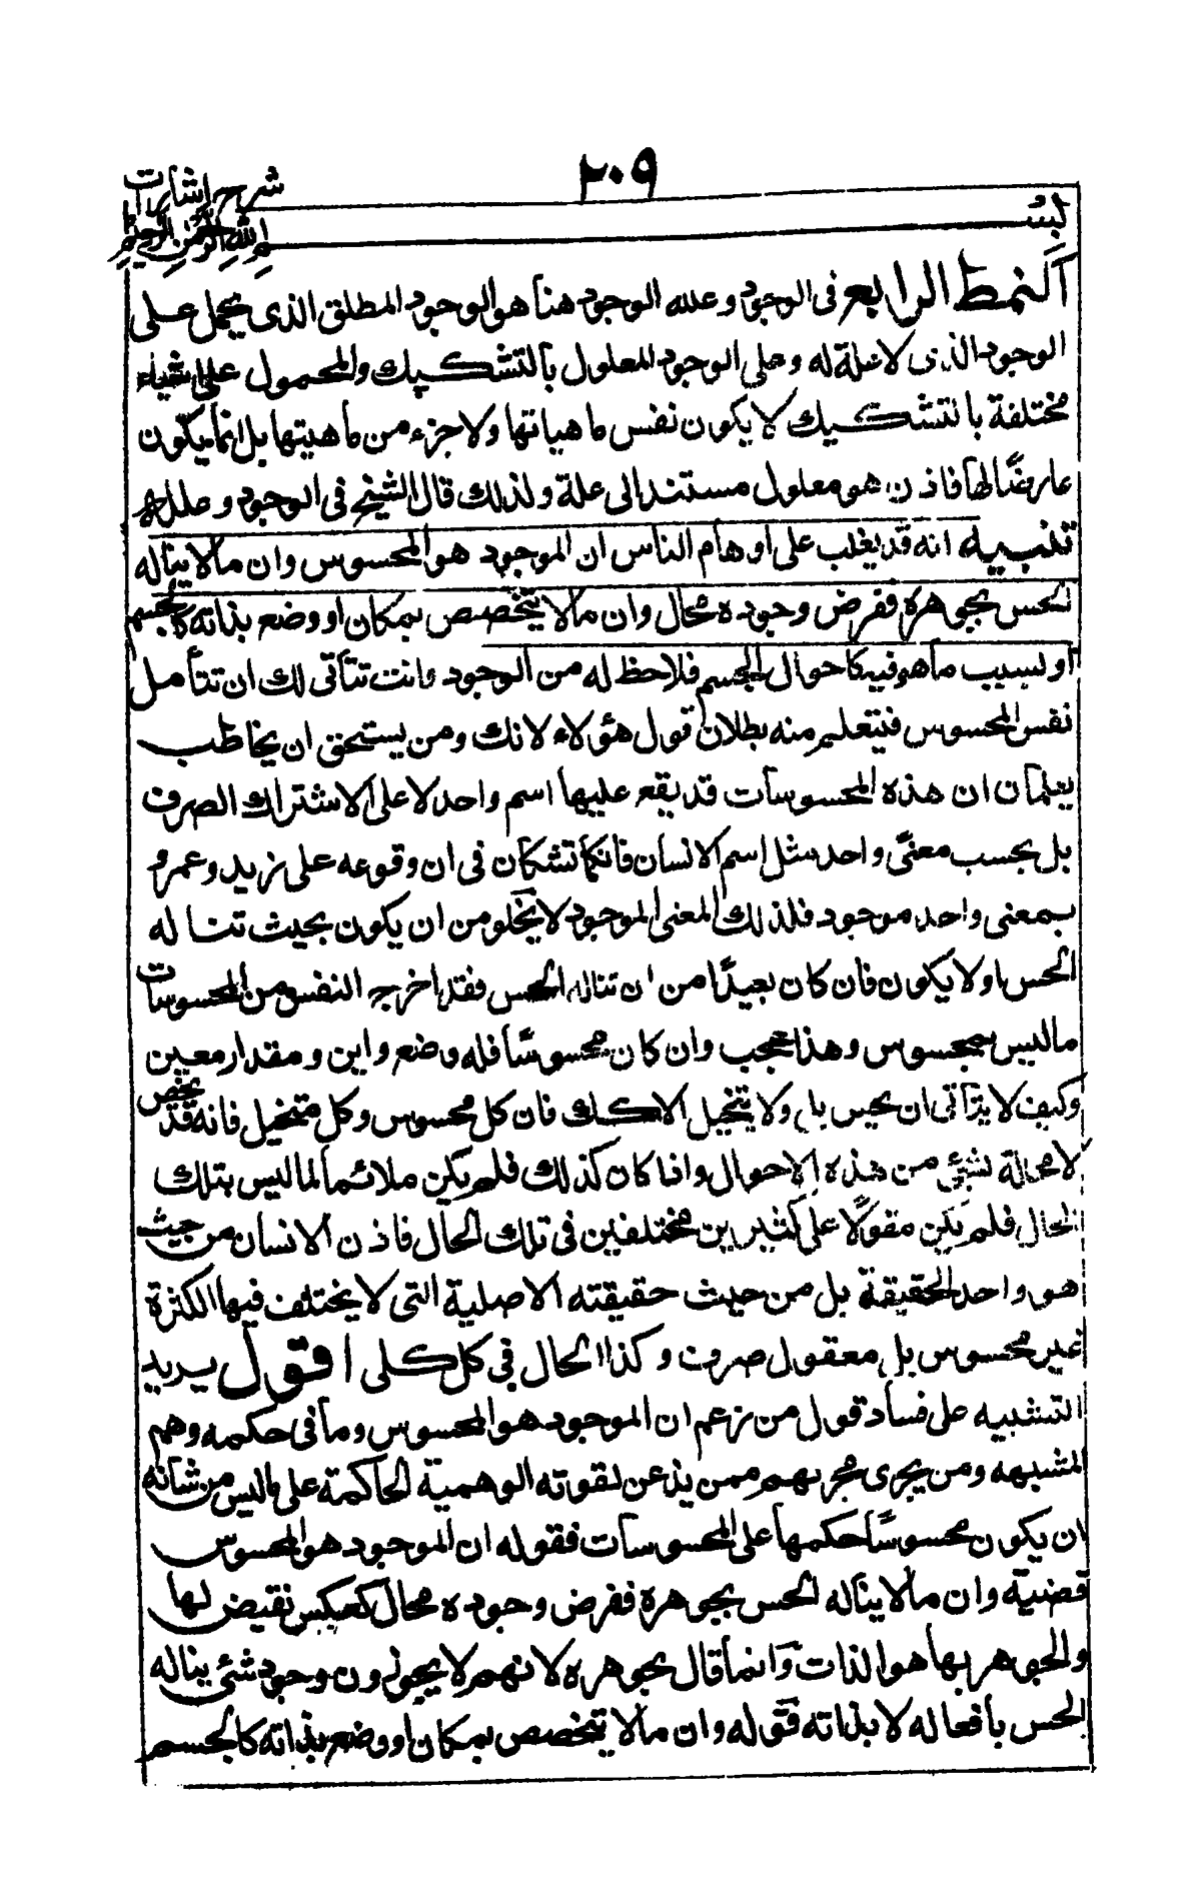 ٢٠٩
شرح اشارات
بسم الله الرحمن الرحيم
النمط الرابع فى الوجود وعلله الوجود هنا هو الوجود المطلق الذى يحمل على
الوجود الذى لا علة له وعلى الوجود المعلول بالتشكيك والمحمول على اشياء
مختلفة بالتشكيك لا يكون نفس ماهياتها ولا جزء من ماهيتها بل انما يكون
عارضًا لها فاذن هو معلول مستند الى علة ولذلك قال الشيخ فى الوجود وعلله
تنبيه انه قد يغلب على اوهام الناس ان الموجود هو المحسوس وان مالا يناله
الحس بجوهره ففرض وجوده محال وان مالا يتخصص بمكان او وضع بذاته كالجسم
او بسبب ما هو فيه كاحوال الجسم فلا حظ له من الوجود وانت تتأتى لك ان تتأمل
نفس المحسوس فتعلم منه بطلان قول هؤلاء لانك ومن يستحق ان يخاطب
يعلمان ان هذه المحسوسات قد يقع عليها اسم واحد لا على الاشتراك الصرف
بل بحسب معنًى واحد مثل اسم الانسان فانكما تشكان فى ان وقوعه على زيد وعمرو
بمعنى واحد موجود فلذلك المعنى الموجود لا يخلو من ان يكون بحيث تناله
الحس او لا يكون فان كان بعيدًا من ان تناله الحس فقد اخرج النفس من المحسوسات
ما ليس بمحسوس وهذا عجب وان كان محسوسًا فله وضع واين ومقدار معين
وكيف لا يتأتى ان يحس بل ولا يتخيل الا كك فان كل محسوس وكل متخيل فانه قد يخص
لا محالة بشيئ من هذه الاحوال واذا كان كذلك فلم يكن ملائما لما ليس بتلك
الحال فلم يكن مقولًا على كثيرين مختلفين فى تلك الحال فاذن الانسان من حيث
هو واحد الحقيقة بل من حيث حقيقته الاصلية التى لا يختلف فيها الكثرة
غير محسوس بل معقول صرف وكذا الحال فى كل كلى اقول يريد
التنبيه على فساد قول من زعم ان الموجود هو المحسوس وما فى حكمه وهم
المشبهه ومن يجرى مجريهم ممن يذعن لقوته الوهمية الحاكمة على ماليس من شانه
ان يكون محسوسًا حكمها على المحسوسات فقوله ان الموجود هو المحسوس
قضية وان مالا يناله الحس بجوهره ففرض وجوده محال كعكس نقيض لها
والجوهر بها هو الذات وانما قال بجوهره لانهم لا يجوزون وجود شئ يناله
الحس بافعاله لا بذاته فقوله وان مالا يتخصص بمكان او وضع بذاته كالجسم